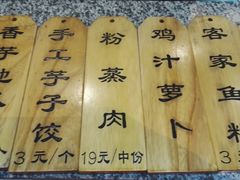 香芋地
手工芋子饺
3元/个
粉蒸肉
19元/中份
鸡汁萝卜
客家鱼
3